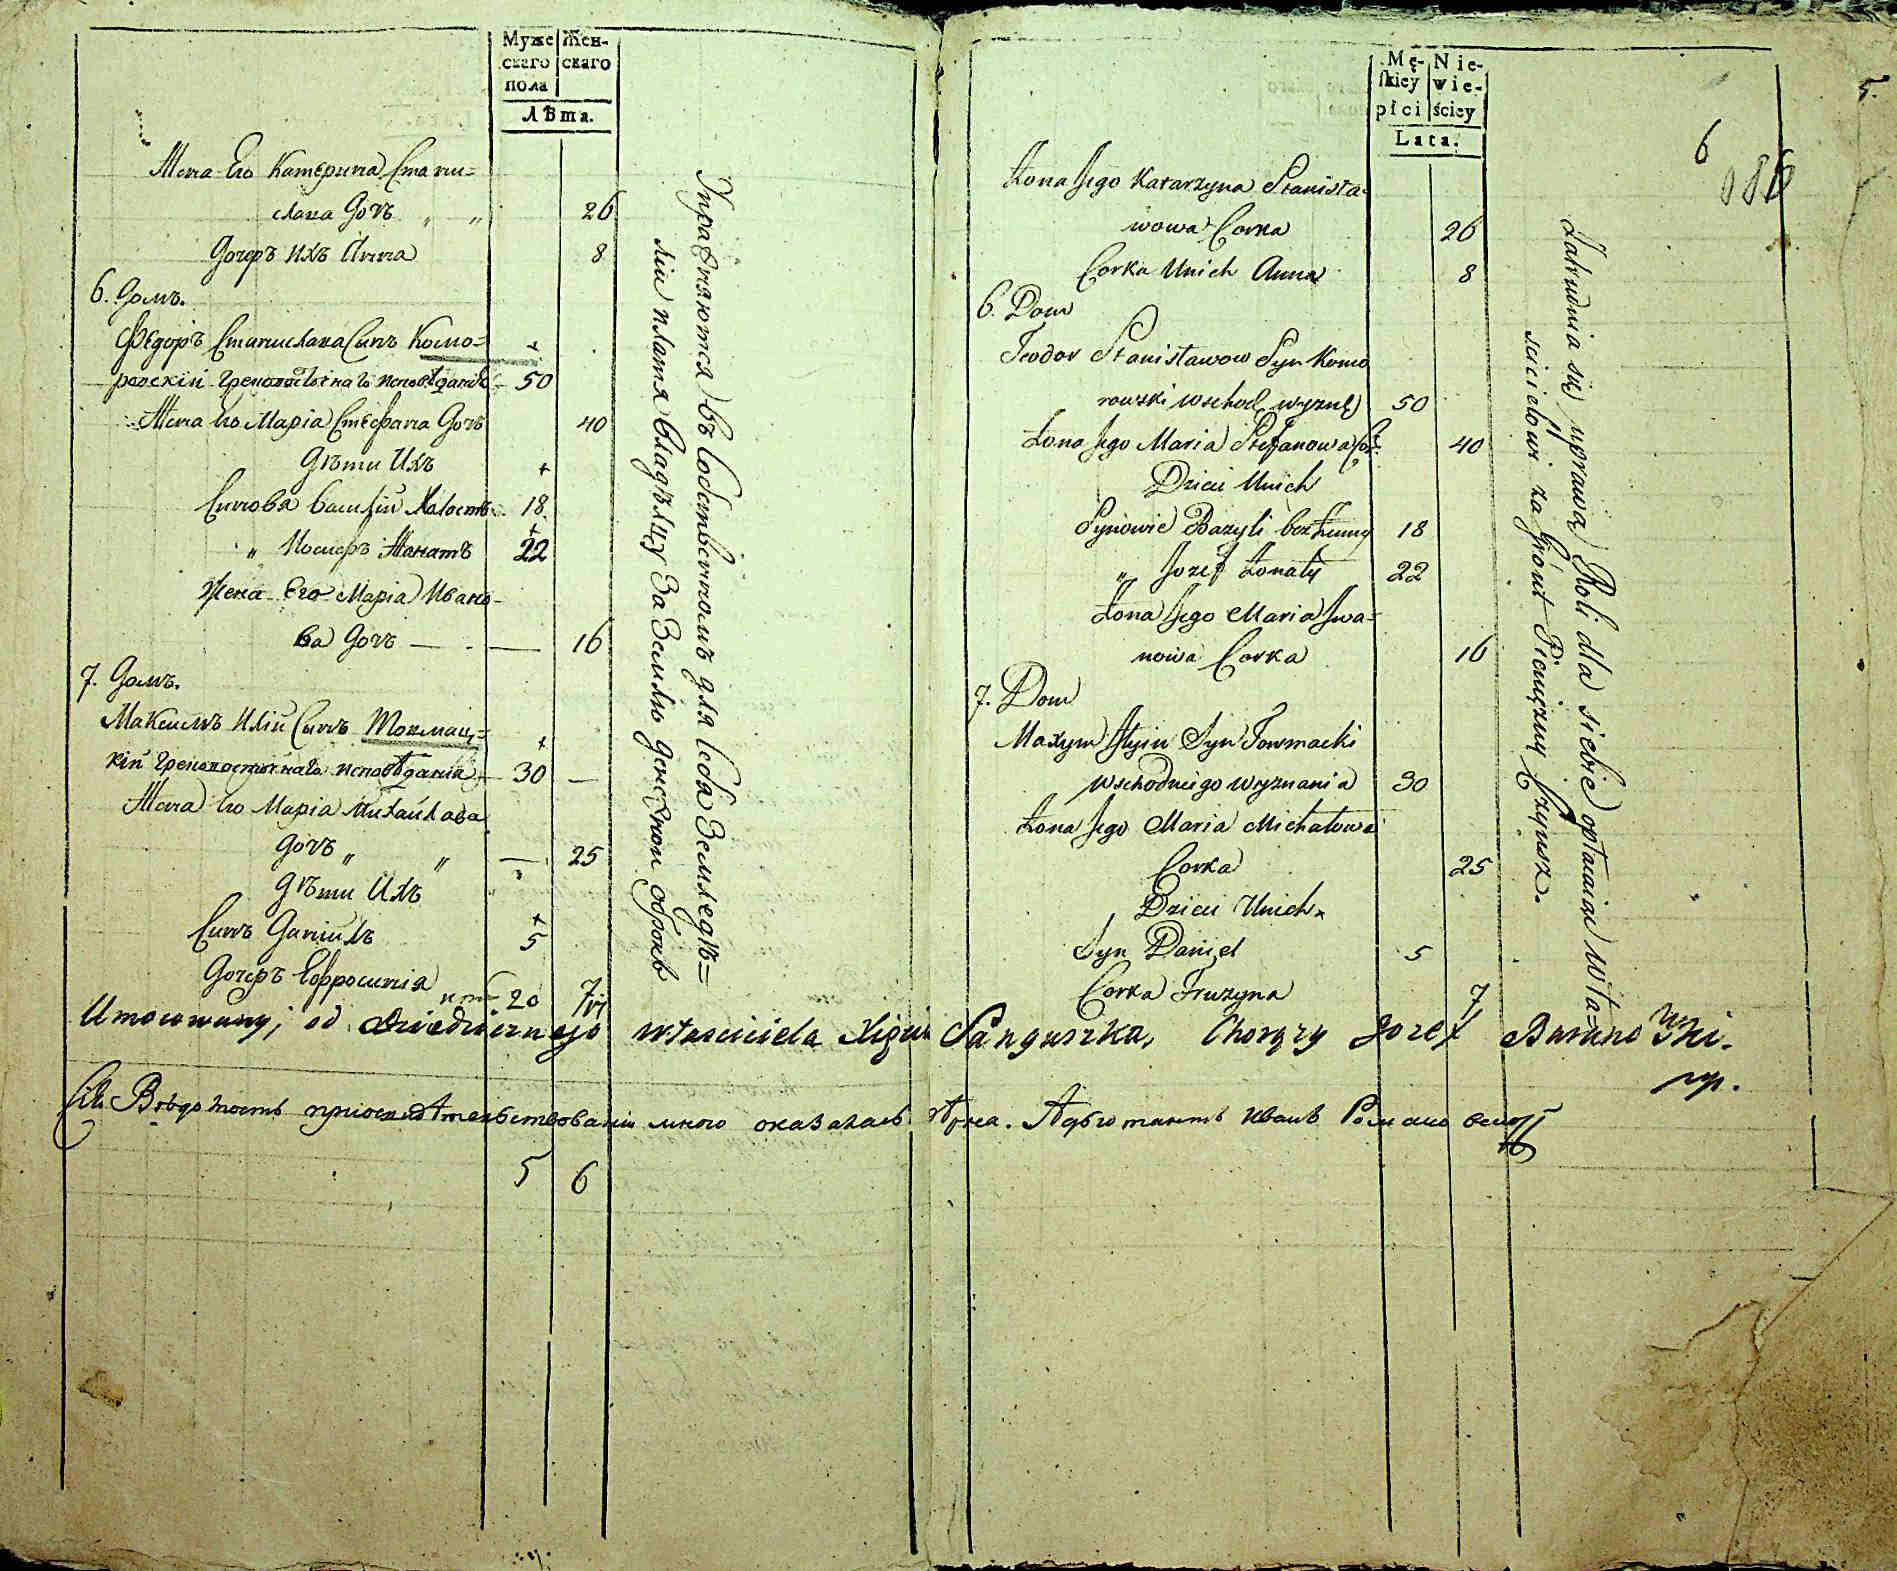 Муже
скаго
пола
Жен-
скаго
Лѣта.
Жена Его Катерина Стани=
слава Дочь " " 26
Дочеръ Ихъ Анна 8
6. Домъ.
Федоръ Станислава Синъ Комо= +
ровскій Грековосточнаго исповѣданія 50
Жена Его Маріа Стефана Дочь 40
Дѣти Ихъ +
Синовя Василій Холостъ 18
" Иосифъ Женатъ + 22
Жена Его Маріа Ивано-
ва Дочь — 16
7. Домъ.
Максимъ Иліи Синъ Товмац= +
кій Грековосточнаго исповѣданія 30 —
Жена Его Маріа Михайлова
Дочь " " — 25
Дѣти Ихъ
Синъ Даніилъ + 5
Дочеръ Ефросинія 7
20
Упражняются въ собственномъ для себя Земледѣ=
ліи платя владѣлцу За Землю денежной оброкъ
Mę-
skiey
płci
Nie-
wie-
ściey
Lata.
5.
6
Żona Jego Katarzyna Stanisła-
wowa Corka 26
Corka Unich Anna 8
6. Dom
Teodor Stanisławow Syn Komo
rowski wschod wyznę 50
Żona Jego Maria Stefanowa Cor: 40
Dzieci Unich
Synowie Bazyli bezżenny 18
" Jozef Żonaty 22
Żona Jego Maria Iwa=
nowa Corka 16
7. Dom
Maxym Ilyin Syn Towmacki
wschodniego wyznania 30
Żona Jego Maria Michałowa
Corka 25
Dzieci Unich
Syn Daniel 5
Corka Fruzyna 7
Zatrudnia się uprawą Roli dla siebie opłacaiąc wła=
scicielowi za Grónt Pieniężny Czynsz.
Umocowany od dziedzicznego własciciela Xięcia Sanguszka, Chorąży Jozef Baranowski.
mp.
Сія Вѣдомость при освидѣтельствованіи мною оказалась вѣрна. Адъютантъ Иванъ
5 6